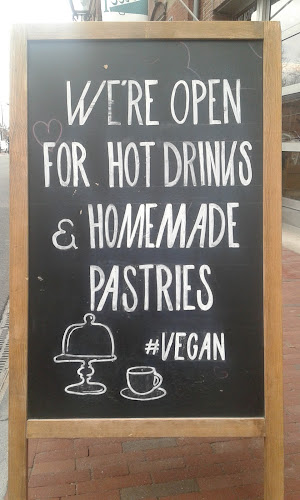 WE'RE OPEN
FOR HOT DRINKS
& HOMEMADE
PASTRIES
#VEGAN